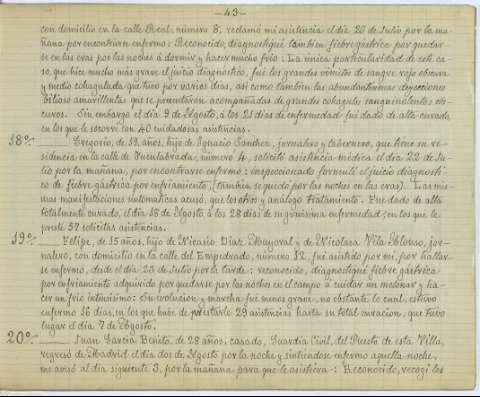 —43—
con domicilio en la calle Real, número 8; reclamó mi asistencia el día 20 de Julio por la ma-
ñana por encontrarse enfermo: Reconocido, diagnostiqué también fiebre gástrica por quedar-
se en las eras por las noches á dormir y hacer mucho frío: La única particularidad de este ca-
so, que hizo mucho más grave el juicio diagnóstico, fué los grandes vómitos de sangre rojo obscura
y medio coagulada que tuvo por varios días, así como también las abundantísimas deyecciones
bilioso amarillentas que se presentaron acompañadas de grandes coágulos sanguinolentos obs-
curos. Sin embargo el día 9 de Agosto, á los 21 días de enfermedad fué dado de alta curado,
en los que le socorrí con 40 cuidadosas asistencias.
18º— Gregorio, de 19 años, hijo de Ignacio Sánchez, jornalero y tabernero, que tiene su re-
sidencia en la calle de Fuenlabrada, número 4, solicitó asistencia médica el día 22 de Ju-
lio por la mañana, por encontrarse enfermo: inspeccionado formulé el juicio diagnósti-
co de fiebre gástrica por enfriamiento, (también se quedó por las noches en las eras). Las mis-
mas manifestaciones sintomáticas acusó, que los otros y análogo tratamiento. Fué dado de alta
totalmente curado, el día 18 de Agosto á los 28 días de su gravísima enfermedad; en los que le
presté 57 solícitas asistencias.
19º— Felipe, de 15 años, hijo de Nicasio Díaz Mayoral y de Nicolasa Vila Alonso, jor-
nalero, con domicilio en la calle del Empedrado, número 12, fué asistido por mí, por hallar-
se enfermo, desde el día 23 de Julio por la tarde: reconocido, diagnostiqué fiebre gástrica
por enfriamiento adquirido por quedarse por las noches en el campo á cuidar un melonar y ha-
cer un frío intensísimo: Su evolución y marcha fué menos grave, no obstante lo cual, estuvo
enfermo 16 días, en los que hube de prestarle 29 asistencias hasta su total curación, que tuvo
lugar el día 7 de Agosto.
20º— Juan García Benito, de 28 años, casado, Guardia Civil, del Puesto de esta Villa,
regresó de Madrid el día dos de Agosto por la noche y sintiéndose enfermo aquella noche,
me avisó al día siguiente 3, por la mañana para que le asistiera: Reconocido, recogí los